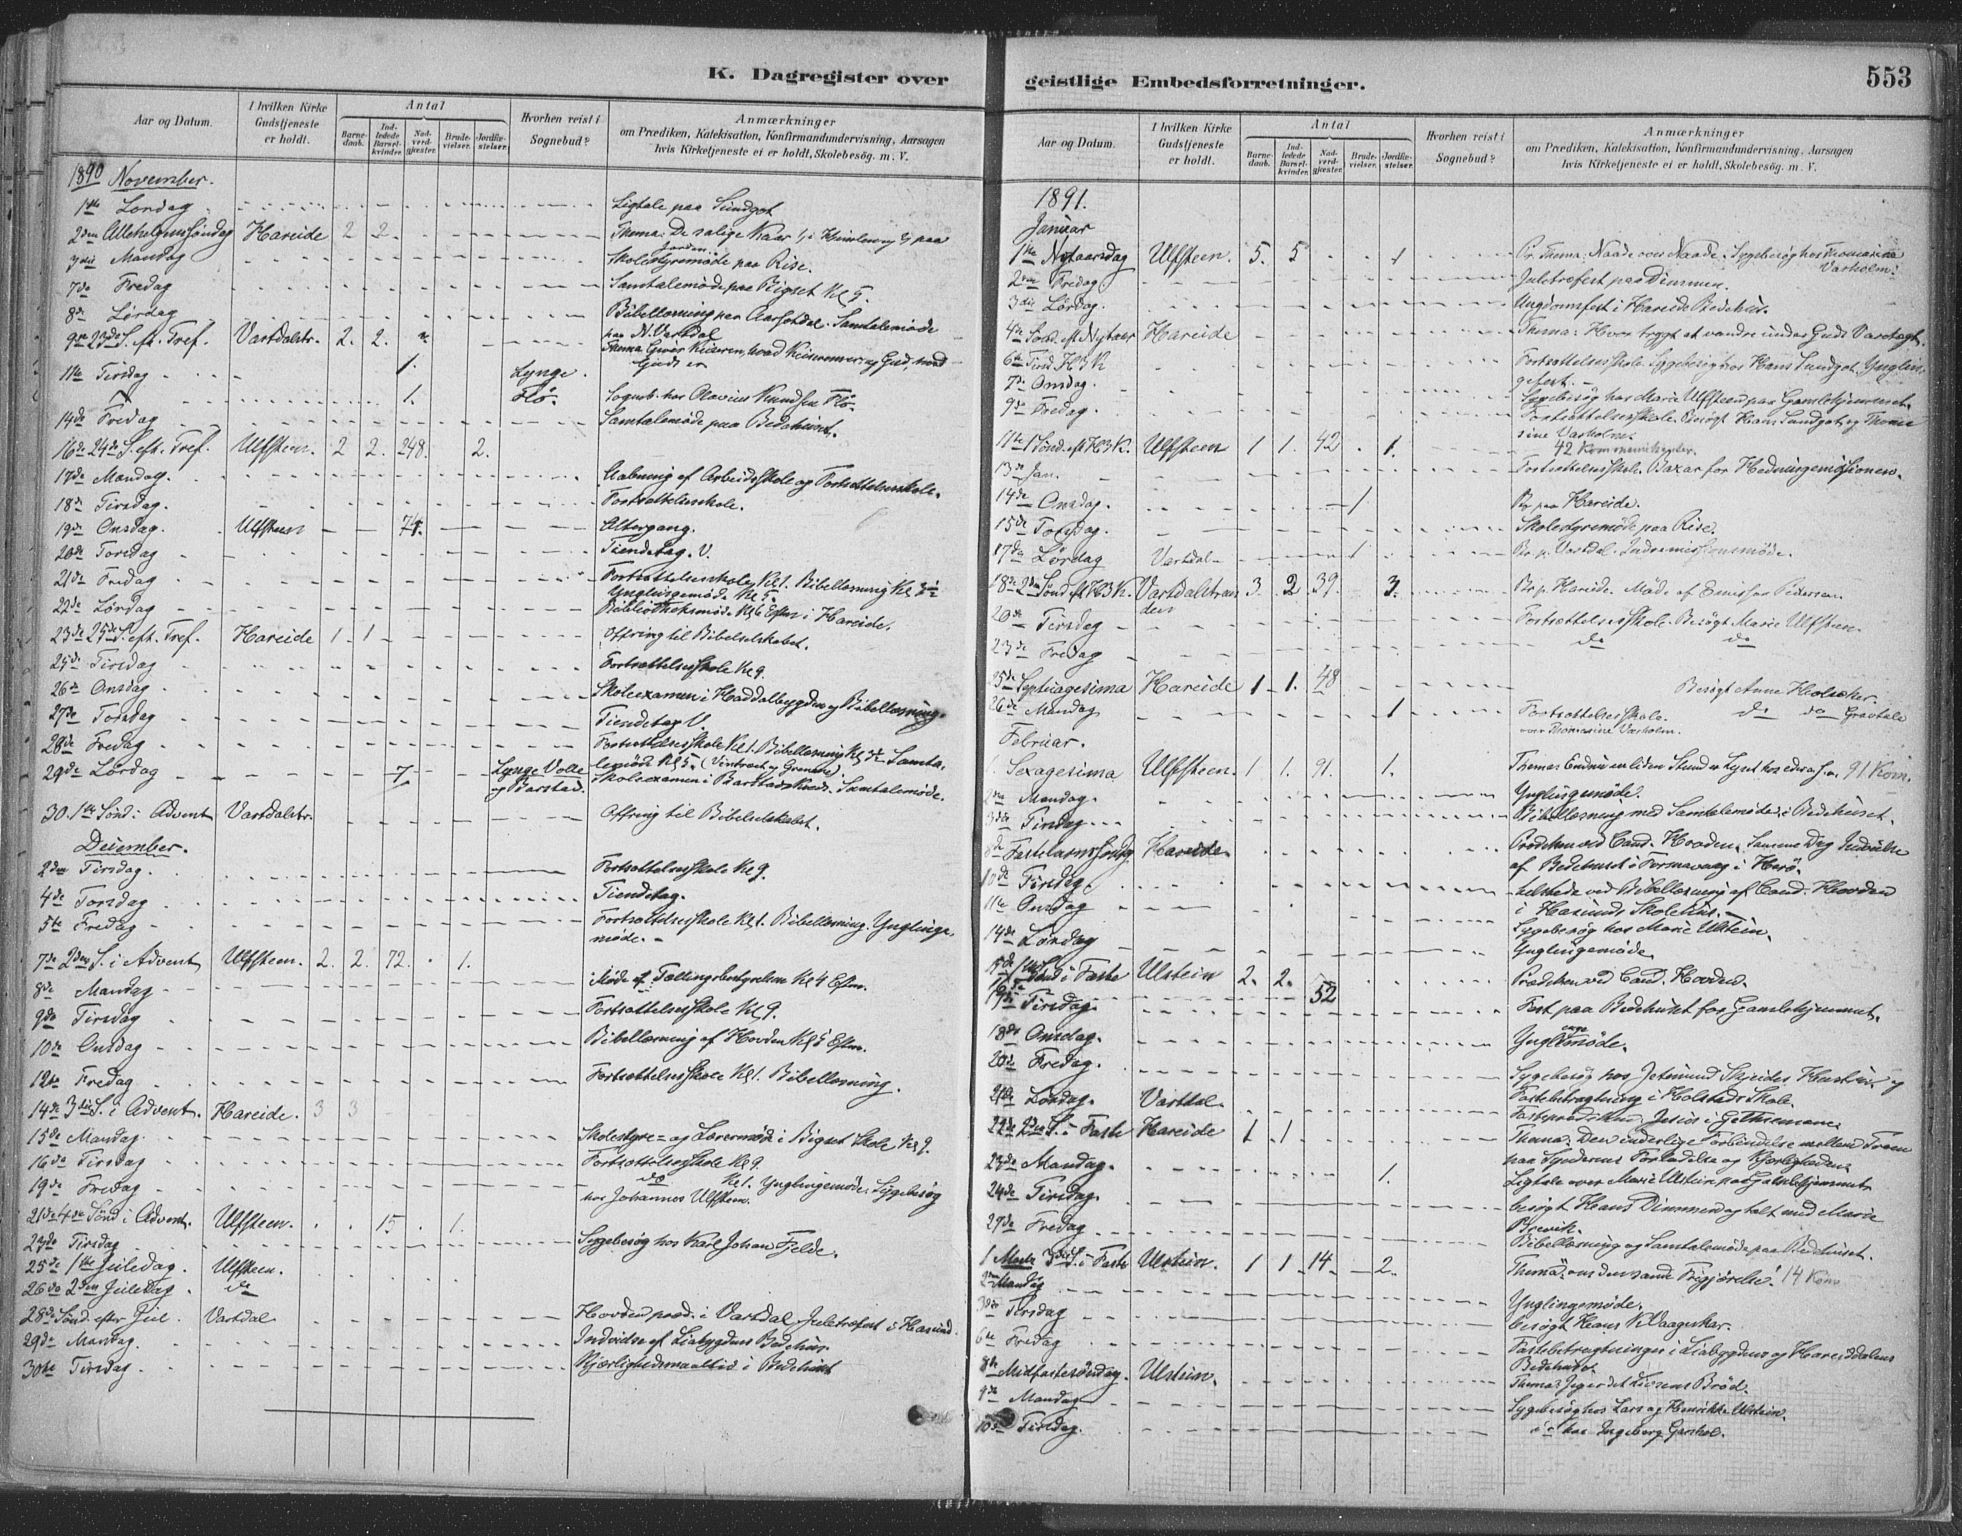 K. Dagregister over
Aar og Datum.
I hvilken Kirke Gudstjeneste er holdt.
Antal
Barnedaab.
Indledede Barselkvinder.
Nadverdgjester.
Brudevielser.
Jordfæstelser.
Hvorhen reist i Sognebud?
Anmærkninger
om Prædiken, Katekisation, Konfirmandundervisning, Aarsagen
hvis Kirketjeneste ei er holdt, Skolebesög. m. V.
1890 November.
1ste Lørdag Ligtale paa Sundgot
2den Allehelgenssøndag Hareide 2 2 Thema: De salige Kaar 1, i Himlen og 2, paa Jorden.
3die Mandag Skolestyremøde paa Rise.
7de Fredag Samtalemøde paa Bigset Kl 5.
8de Lørdag Bibellæsning paa Aarsetdal. Samtalemøde paa N. Vartdal
9de 23de S. ef. Tref. Vartdalstr. 2. 2. Thema Giver Keiseren, hvad Keiserens er, og Gud, hvad Guds er
11te Tirsdag 1. Lynge.
1. Flø. Sogneb. hos Olavius Knudsen Flø.
14de Fredag Samtalemøde paa Bedehuset.
16de 24de S. eft. Tref. Ulfsteen. 2 2. 248. 2.
17de Mandag. Aabning af Arbeidsskole og Fortsættelsesskole.
18de Tirsdag. Fortsættelsesskole.
19de Onsdag. Ulfsteen 74. Altergang.
20de Torsdag Tiendetag. V.
21de Fredag Fortsættelsesskole Kl 1. Bibellæsning Kl 3 Ynglingemøde Kl 5.
22de Lørdag Bibliotheksmøde Kl 6 Efterm i Hareide.
23de 25de S. eft. Tref. Hareide 1 1 Offring til Bibelselskabet.
25de Tirsdag Fortsættelsesskole Kl 9.
26de Onsdag Skoleexamen i Haddalbygden og Bibellæsning.
27de Torsdag Tiendetag V.
28de Fredag Fortsættelsesskole Kl 1. Bibellæsning Kl 3 Samtalemøde Kl 5.
29de Lørdag 7. Lynge Volle og Barstad. Skoleexamen i Barstad Kreds. Samtalemøde.
30. 1ste Sønd: i Advent Vartdalstr. Offring til Bibelselskabet.
December.
2den Tirsdag. Fortsættelsesskole Kl 9.
4de Torsdag Tiendetag.
5te Fredag Fortsættelsesskole Kl 1. Bibellæsning. Ynglingemøde.
7de 2den S. i Advent Ulfsteen. 2. 2. 72. 1.
8de Mandag Møde af Tællingsbestyrelsen Kl 4 Efterm.
9de Tirsdag Fortsættelsesskole Kl 9.
10de Onsdag Bibellæsning af Hovden Kl 5 Efterm.
12te Fredag Fortsættelsesskole Kl 1. Bibellæsning.
14de 3die S. i Advent. Hareide. 3 3
15de Mandag. Skolestyre- og Lærermøde i Bigset Skole Kl 9.
16de Tirsdag Fortsættelsesskole Kl 9.
19de Fredag do Kl 1. Ynglingemøde. Sygebesøg hos Johannes Ulfsteen.
21de 4de Sønd i Advent. Ulfsteen. 15 1.
23de Tirsdag Sygebesøg hos Karl Johan Fjelde.
25de 1ste Juledag. Ulfsteen.
26de 2den Juledag. do
28de Sønd. efter Jul. Vartdal Hovden præd. i Vartdal Juletræfest i Hasund.
29de Mandag. Indvidse af Liabygdens Bedehus.
30te Tirsdag. Kjærlighedsmaaltid i Bedehuset
geistlige Embedsforretninger. 553
Aar og Datum.
I hvilken Kirke Gudstjeneste er holdt.
Antal
Barnedaab.
Indledede Barselkvinder.
Nadverdgjester.
Brudevielser.
Jordfæstelser.
Hvorhen reist i Sognebud?
Anmærkninger
om Prædiken, Katekisation, Konfirmandundervisning. Aarsagen
hvis Kirketjeneste ei er holdt, Skolebesög. m. V.
1891.
Januar
1ste Nytaarsdag Ulfsteen. 5. 5 1 Pr. Thema: Naade over Naade. Sygebesøg hos Thomasine Varholm.
2den Fredag Juletræfest paa Dimmen.
3die Lørdag. Ungdomsfest i Hareide Bedehus.
4de Sønd. ef. Nytaar Hareide Thema: Hvor trygt at vandre under Guds Varetægt.
6te Tirsd. H3K Fortsættelsesskole. Sygebesøg hos Hans Sundgot. Ynglingefest.
7de Onsdag. Sygebesøg hos Marie Ulfsteen paa Gamlehjemmet.
9de Fredag. Fortsættelsesskole. Besøgt Hans Sundgot og Thomasine Varholm.
11te 1 Sønd. eft H3K. Ulfsteen 1 1. 42. 1. 42 Kommunikanter.
13de Jan. Fortsættelsesskole. Bazar for Hedningemissionen.
14de Onsdag. 1 Br paa Hareide.
15de Torsdag. Skolestyremøde paa Rise.
17de Lørdag Vartdal 1 Br. p. Vartdal. Indremissionsmøde.
18de 2den Sønd eft H3K. Vartdalstranden 3 2 39. 3. Br. p. Hareide. Møde af Emissær Pedersen.
20de Tirsdag Fortsættelsesskole. Besøgt Marie Ulfsteen.
23de Fredag do do
25de Septuagesima Hareide 1 1. 48. Besøgt Anne
26de Mandag 1 Fortsættelsesskole. do do Gravtale over Thomasine Varholm.
Februar.
1 Sexagesima Ulfsteen. 1 1. 91. 1. Thema: Endnu en liden Stund er Lyset hos eder 91 Kom.
2den Mandag. Ynglingemøde.
3die Tirsdag Bibellæsning med Samtalemøde i Bedehuset.
8de Fastelavnssøndag Hareide. Prædiken ved Cand. Hovden. Samme Dag Indvielse af Bedehuset i i Herø.
10de Tirsdag. tilstede ved Bibellæsning af Cand. Hovden
11te Onsdag i Hasunds Skolehus.
14de Lørdag Sygebesøg hos Marie Ulstein. Ynglingemøde
15de 1ste Sønd i Faste Ulstein 2. 2. Prædiken ved Cand. Hovden.
17de Tirsdag 52 Fest paa Bedehuset for Gamlehjemmet.
18de Onsdag. Ynglingemøde.
20de Fredag. Sygebesøg hos Skjeides Hustru og
21de Lørdag. Vartdal Fastebetragtning i Holstads Skole. Fasteprædiken. Jesus i Gethsemane.
22de 2den S. i Faste Hareide 1 1 Thema: Den inderlige Forbindelse mellem Troen paa Syndernes Forladelse og Kjærligheden.
23de Mandag. 1. Ligtale over Marie Ulstein paa Gamlehjemmet.
24de Tirsdag. besøgt Hans Dimmen og talt med Marie Brevik.
27de Fredag Bibellæsning og Samtalemøde paa Bedehuset.
1 Marts 3die S. i Faste Ulstein. 1 1 14. 2. Thema: om den sande Frigjørelse. 14 Kom
2den Mandag Ynglingemøde.
3die Tirsdag besøgt Hans K Vaageskar.
6te Fredag Fastebetragtninger i Liabygdens og Hareiddalens Bedehuse.
8de Midfastesøndag. Ulstein. Thema: Jeg er det Livsens Brød.
9de Mandag Sygebesøg hos Lars og Henrikke Ulstein.
10de Tirsdag. Ingeborg Garshol.